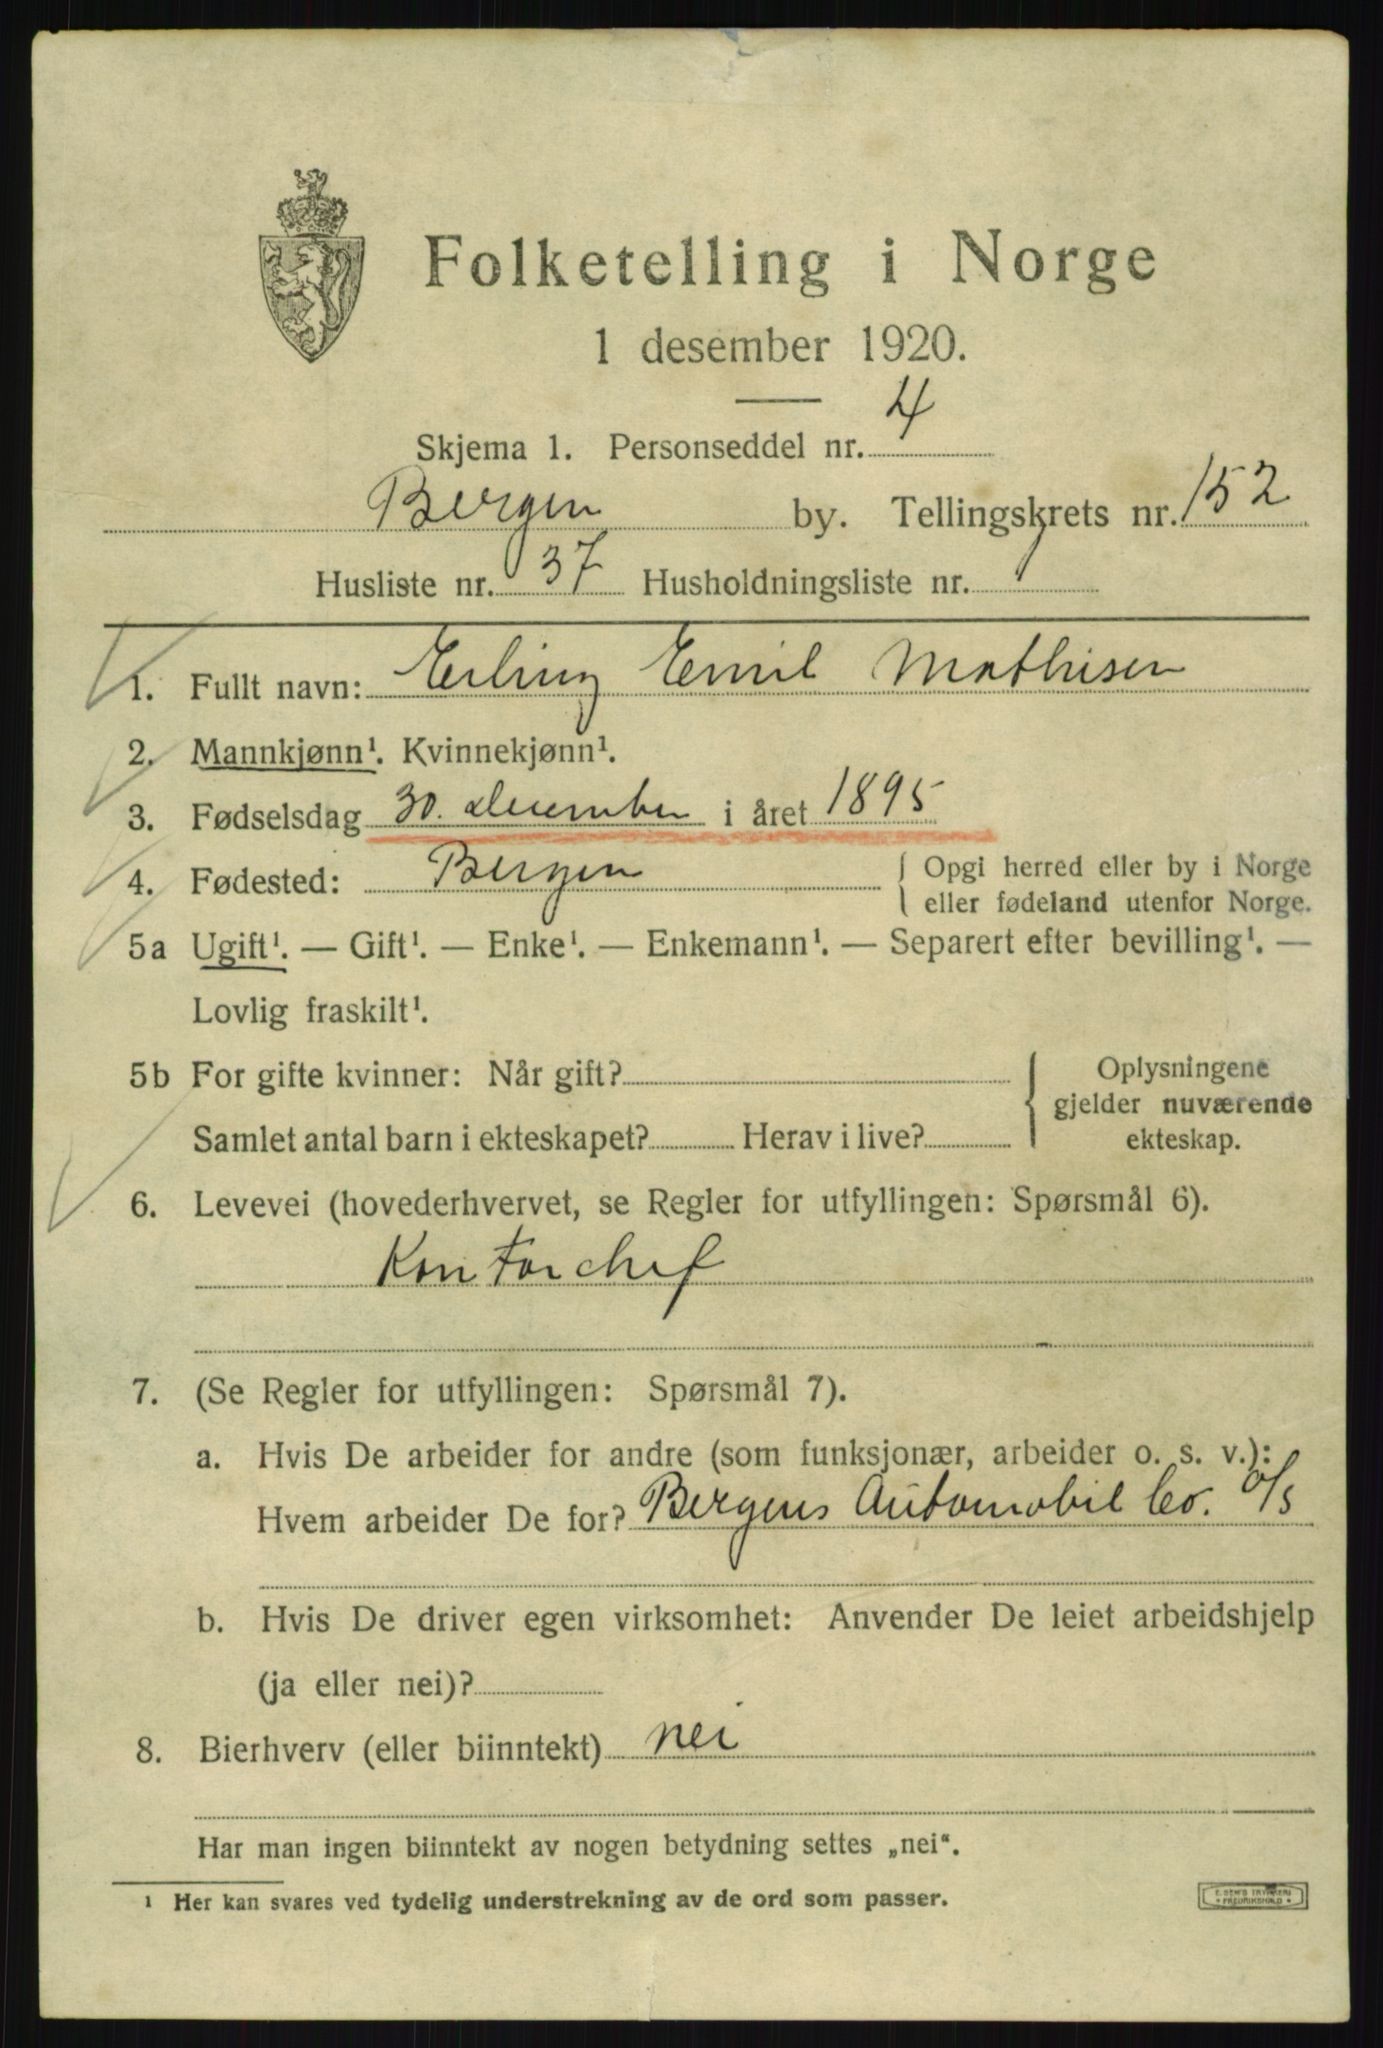 Folketelling i Norge
1 desember 1920.
Skjema 1. Personseddel nr. 4
Bergen by. Tellingskrets nr. 152
Husliste nr. 37 Husholdningsliste nr. 1
1. Fullt navn: Erling Emil Mathisen
2. Mannkjønn¹. Kvinnekjønn¹.
3. Fødselsdag 30. december i året 1895
4. Fødested: Bergen { Opgi herred eller by i Norge
eller fødeland utenfor Norge.
5a Ugift¹. — Gift¹. — Enke¹. — Enkemann¹. — Separert efter bevilling¹. —
Lovlig fraskilt¹.
5b For gifte kvinner: Når gift?
Samlet antal barn i ekteskapet? Herav i live?
{ Oplysningene
gjelder nuværende
ekteskap.
6. Levevei (hovederhvervet, se Regler for utfyllingen: Spørsmål 6).
Kontorchef
7. (Se Regler for utfyllingen: Spørsmål 7).
a. Hvis De arbeider for andre (som funksjonær, arbeider o. s. v.):
Hvem arbeider De for? Bergens Automobil Co. a/s
b. Hvis De driver egen virksomhet: Anvender De leiet arbeidshjelp
(ja eller nei)?
8. Bierhverv (eller biinntekt) nei
Har man ingen biinntekt av nogen betydning settes „nei“.
¹ Her kan svares ved tydelig understrekning av de ord som passer.
TRYKKERI
FREDRIKSHALD